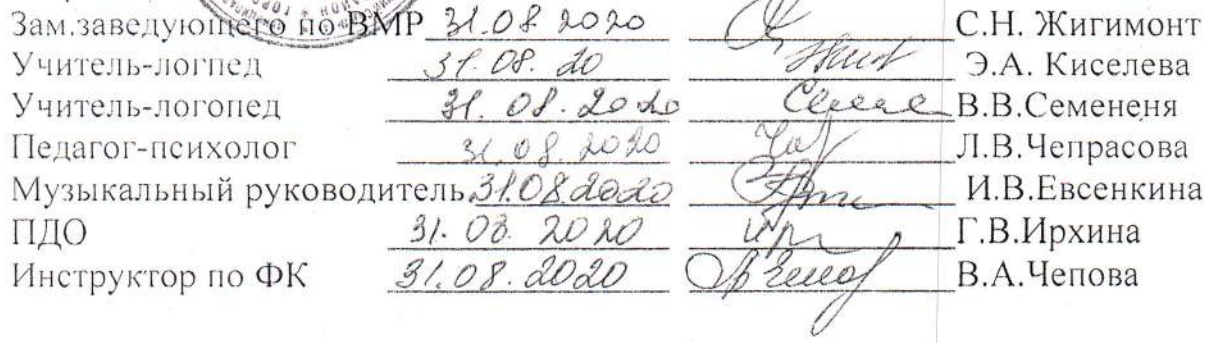 Зам.заведующего по ВМР 31.08 2020 С.Н. Жигимонт
Учитель-логпед 31.08.20 Э.А. Киселева
Учитель-логопед 31.08.2020 В.В.Семененя
Педагог-психолог 31.08 2020 Л.В.Чепрасова
Музыкальный руководитель 31.08.2020 И.В.Евсенкина
ПДО 31.08. 2020 Г.В.Ирхина
Инструктор по ФК 31.08.2020 В.А.Чепова